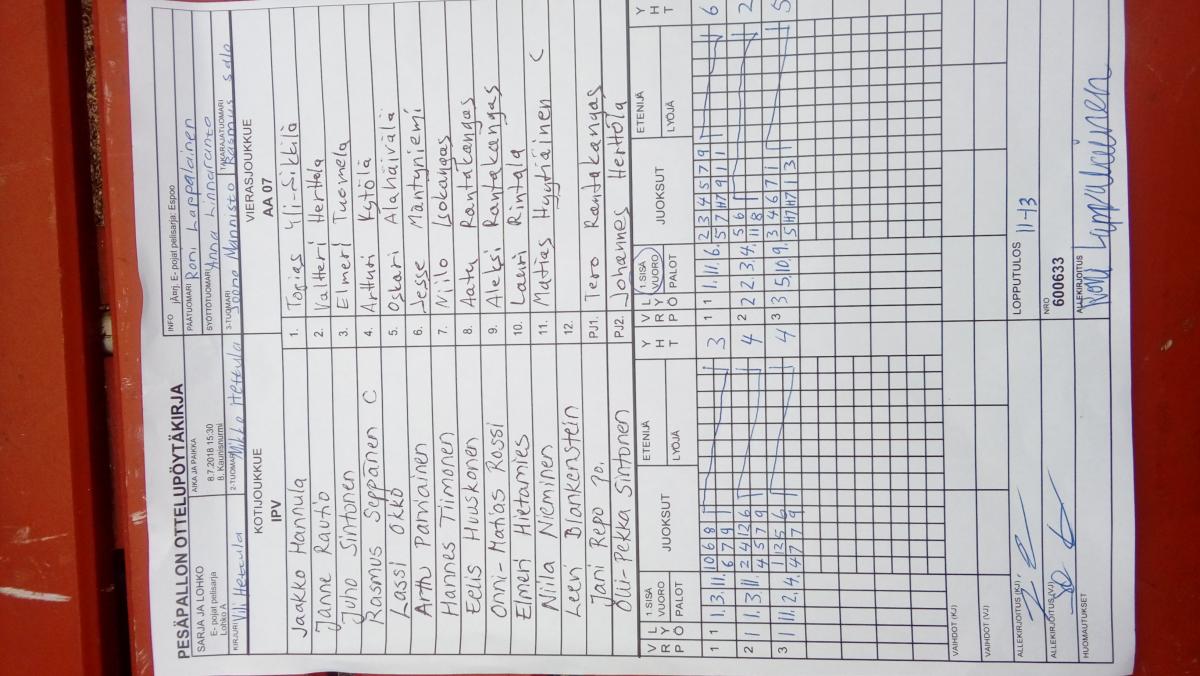 PESÄPALLON OTTELUPÖYTÄKIRJA
SARJA JA LOHKO
E- pojat pelisarja
Lohko A
AIKA JA PAIKKA
8.7.2018 15:30
8. Kaunisnurmi
INFO jÄnj. E- pojat pelisarja: Espoo
PÄÄTUOMARI Roni Lappalainen
SYÖTTÖTUOMARI Anna Linnaranto
KIRJURI Vili Hettula
2-TUOMARI Mikko Hettula
3-TUOMARI Joona Mannisto
TAKARAJATUOMARI Rasmus salo
KOTIJOUKKUE
IPV
VIERASJOUKKUE
AA 07
Jaakko Hannula 1. Topias Yli-Sikkilä
Janne Rautio 2. Valtteri Herttola
Juho Sintonen 3. Elmeri Tuomela
Rasmus Seppänen C 4. Artturi Kytölä
Lassi Okko 5. Oskari Alahäivälä
Arttu Parviainen 6. Jesse Mäntyniemi
Hannes Tiimonen 7. Niilo Isokangas
Eelis Huuskonen 8. Aatu Rantakangas
Onni-Matias Rossi 9. Aleksi Rantakangas
Elmeri Hietamies 10. Lauri Rintala
Niila Nieminen 11. Matias Hyytiäinen C
Leevi Blankenstein 12.
Jani Repo PJ1. Tero Rantakangas
Olli-Pekka Sintonen PJ2. Johannes Herttola
V R P
L Y Ö
1 SISÄ VUORO
PALOT
JUOKSUT
ETENIJÄ
LYÖJÄ
Y H T
V R P
L Y Ö
1 SISÄ VUORO
PALOT
JUOKSUT
ETENIJÄ
LYÖJÄ
Y H T
1 1 1. 3. 11. 10 6 8 3
6 7 9
1 1 1. 11. 6. 2 3 4 5 7 9 6
5 7 H7 9 1 1
2 1 1. 3. 11. 2 4 12 6 4
4 5 7 9
2 2 2. 3. 4. 5 6 2
7 11 8
3 1 11. 2. 4. 1 12 5 6 4
4 7 7 9
3 3 5. 10. 9. 3 4 6 7 11 5
5 H7 H7 1 3
VAIHDOT (KJ)
VAIHDOT (VJ)
ALLEKIRJOITUS (KJ)
LOPPUTULOS 11-13
ALLEKIRJOITUS (VJ)
NRO
600633
HUOMAUTUKSET
ALLEKIRJOITUS
Roni Lappalainen